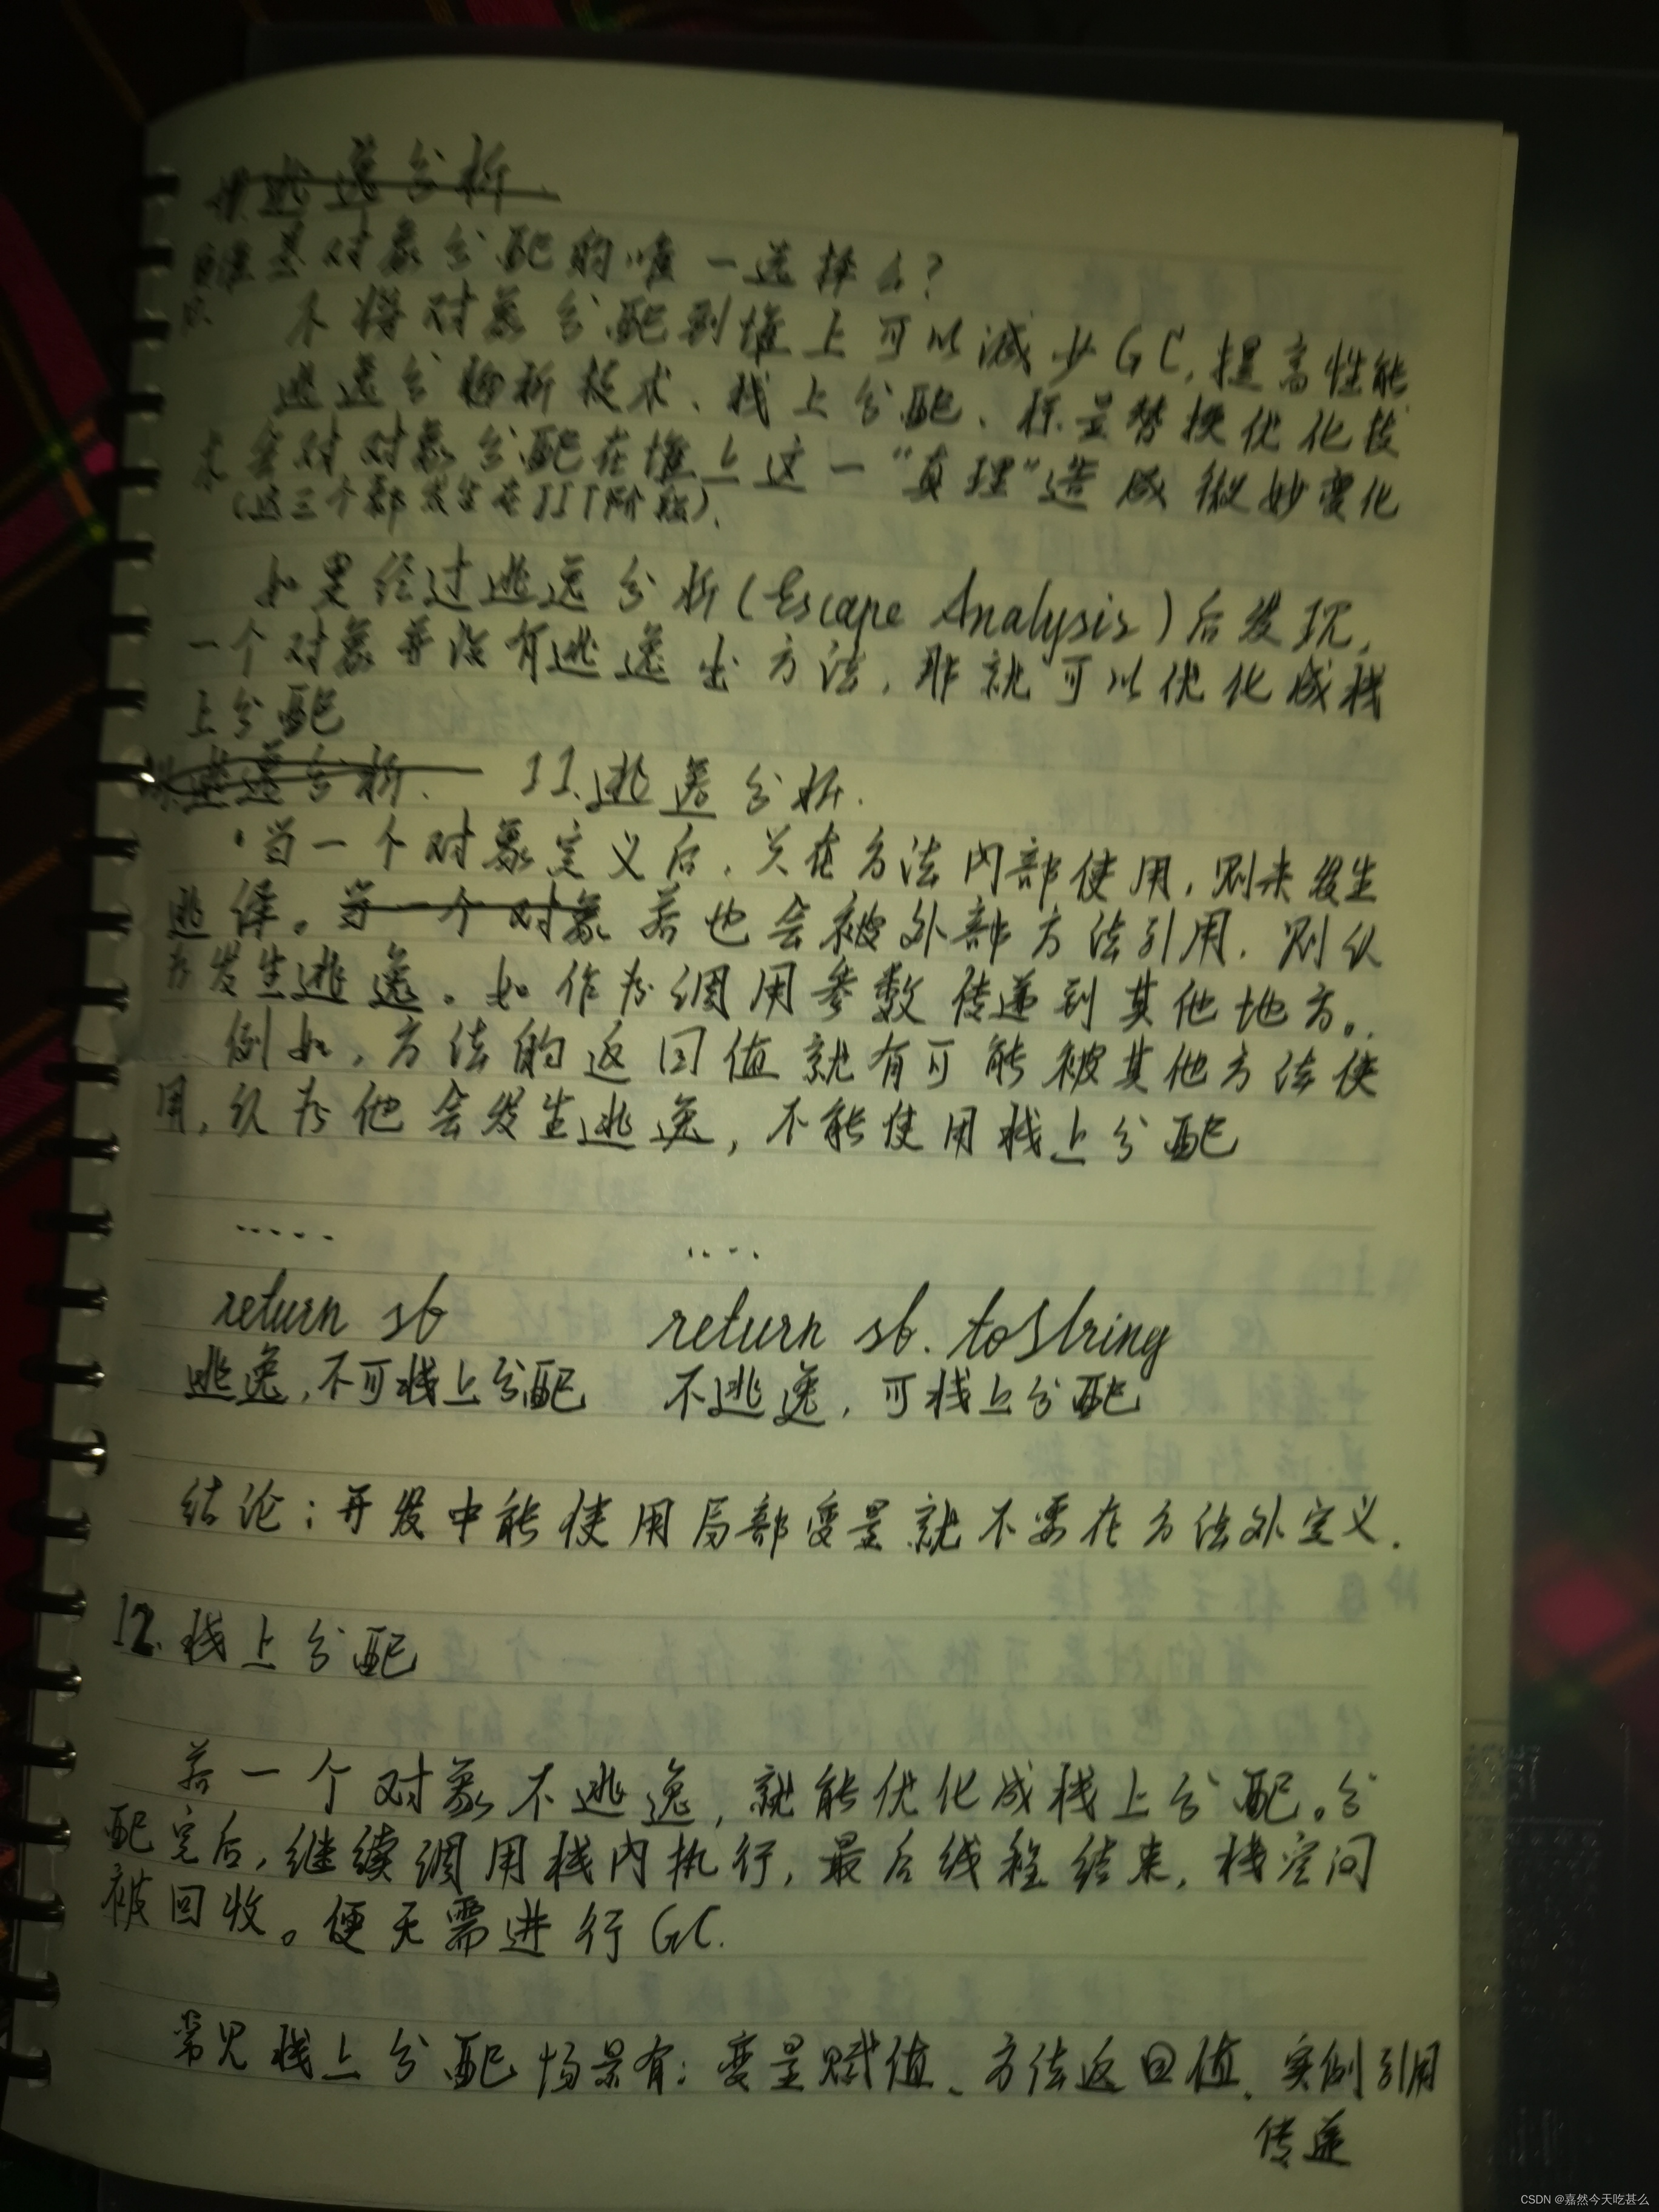 逃逸分析
堆是对象分配的唯一选择么?
不将对象分配到堆上可以减少GC,提高性能
逃逸分析技术、栈上分配、标量替换优化技
术会对对象分配在堆上这一“真理”造成微妙变化
(这三个都发生在JIT阶段).
如果经过逃逸分析(Escape Analysis)后发现,
一个对象并没有逃逸出方法,那就可以优化成栈
上分配
逃逸分析. 11.逃逸分析.
·当一个对象定义后,只在方法内部使用,则未发生
逃逸。当一个对象若也会被外部方法引用.则认
为发生逃逸。如作为调用参数传递到其他地方。
例如,方法的返回值就有可能被其他方法使
用,认为他会发生逃逸,不能使用栈上分配
..... ....
return sb return sb.toString
逃逸,不可栈上分配 不逃逸,可栈上分配
结论:开发中能使用局部变量就不要在方法外定义.
12.栈上分配
若一个对象不逃逸,就能优化成栈上分配。分
配完后,继续调用栈内执行,最后线程结束,栈空间
被回收。便无需进行GC.
常见栈上分配场景有:变量赋值、方法返回值、实例引用
传递
CSDN @嘉然今天吃甚么